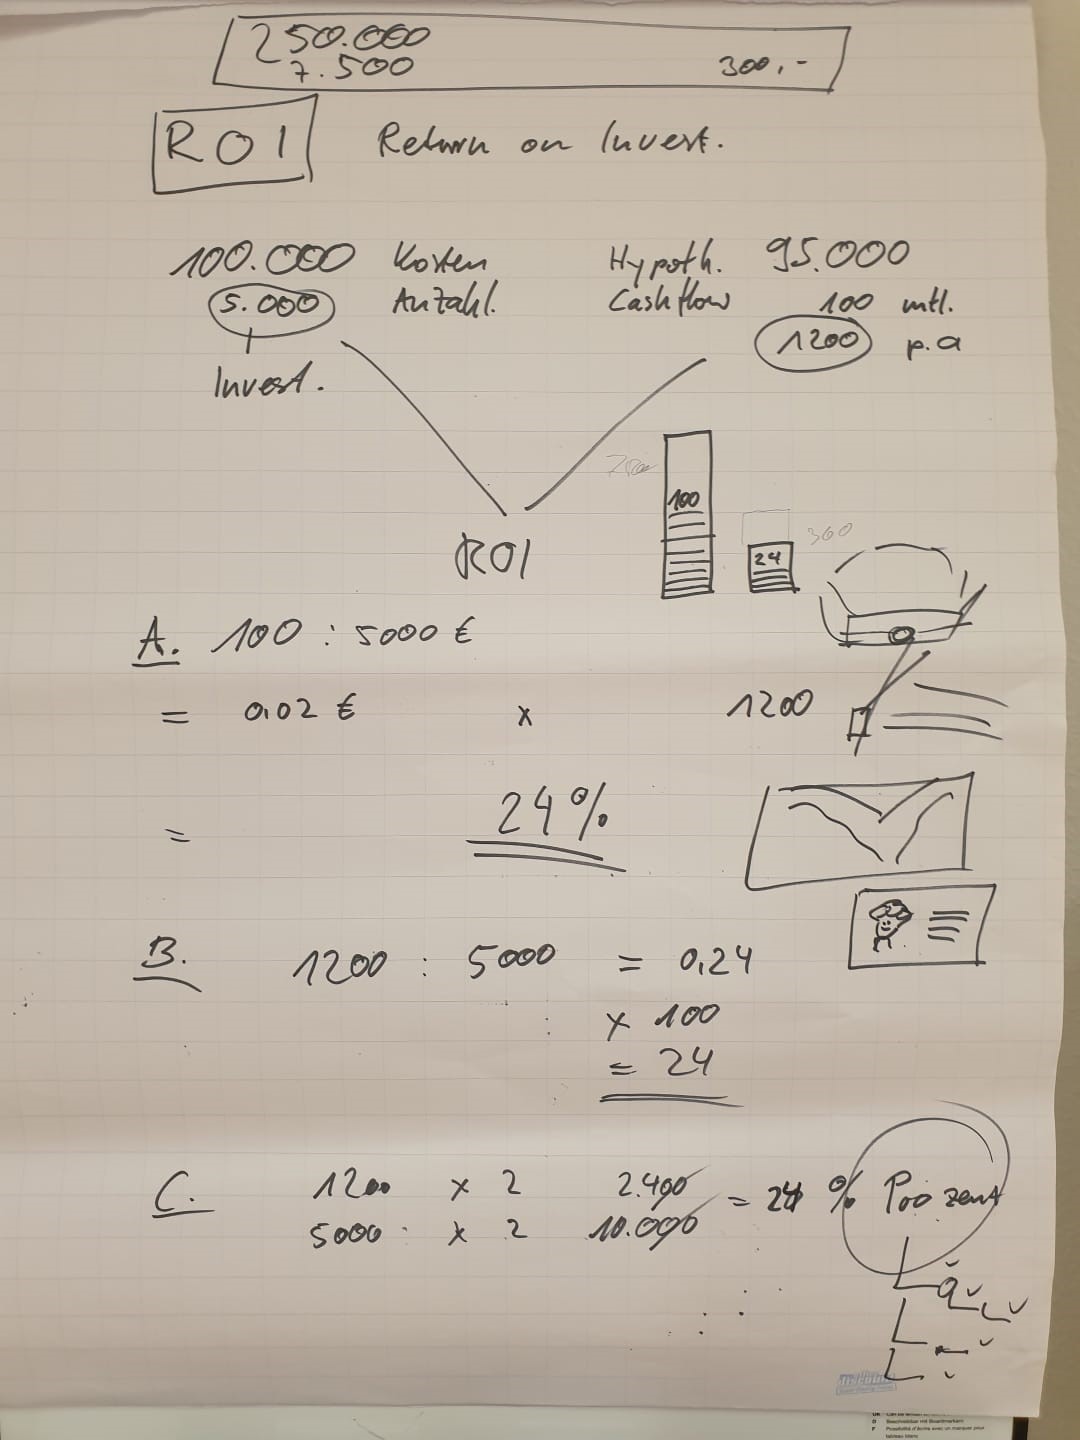 250.000
7.500 300,-
ROI Return on Invest.
100.000 Kosten Hypoth. 95.000
5.000 Anzahl. Cashflow 100 mtl.
1200 p.a
Invest.
100
24
360
ROI
A. 100 : 5000 €
= 0,02 € x 1200
= 24%
B. 1200 : 5000 = 0,24
x 100
= 24
C. 1200 x 2 2.400 = 24 % Prozent
5000 x 2 10.000